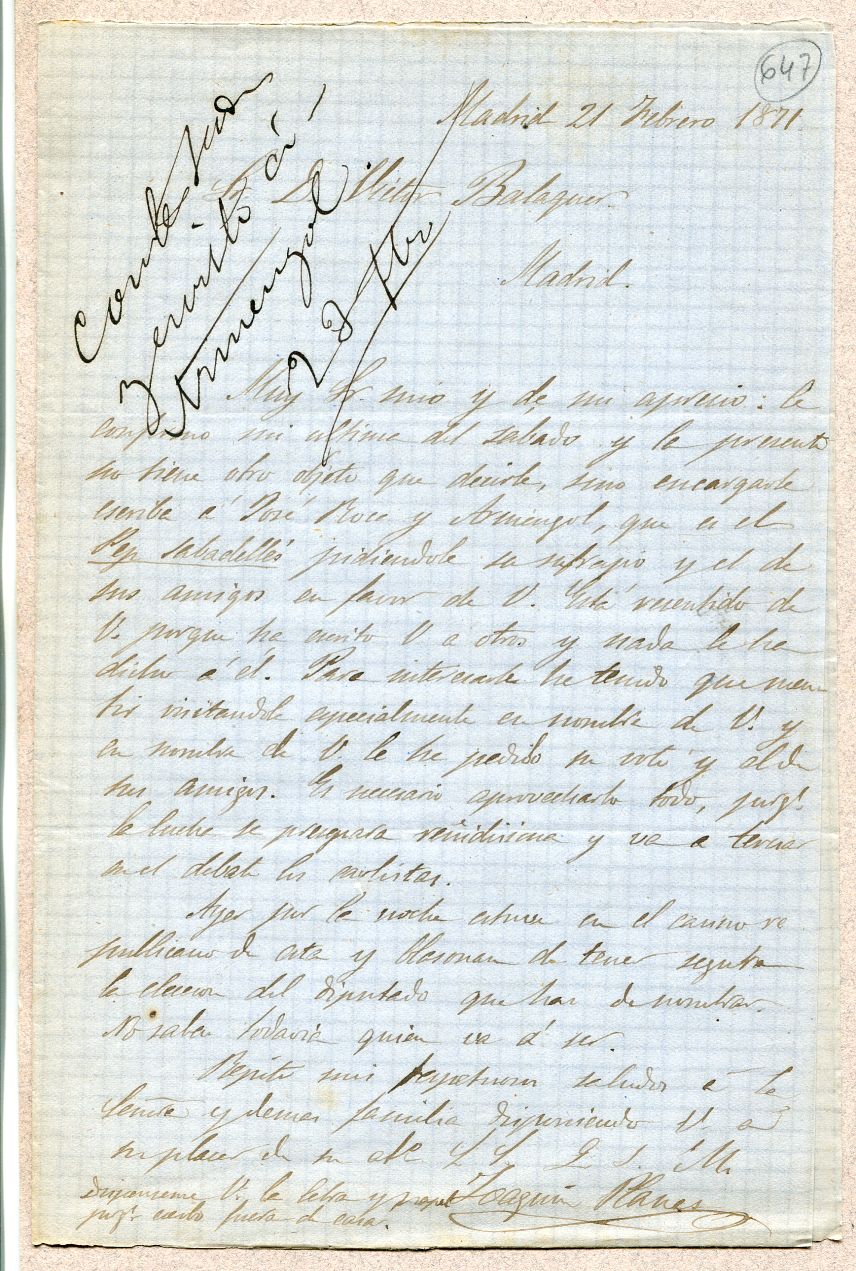 647
Madrid 21 Febrero 1871.
Sr. D. Victor Balaguer.
Madrid.
Contestada
y escrito á
Armengol
23 Fbro
Muy Sr. mio y de mi aprecio: le
confirmo mi ultima del sabado y la presente
no tiene otro objeto que decirle, sino encargarle
escriba á José Roca y Armengol, que es el
Pep Sabadellés pidiendole su sufragio y el de
sus amigos en favor de V. Está resentido de
V. porque ha escrito V. á otros y nada le ha
dicho á él. Para interesarle he tenido que men
tir visitandole especialmente en nombre de V. y
en nombre de V. le he pedido su voto y el de
sus amigos. Es necesario aprovecharlo todo, porqe.
la lucha se prepara reñidisima y va a terciar
en el debate los carlistas.
Ayer por la noche estuve en el casino re
publicano de esta y blasonan de tener segura
la eleccion del diputado que han de nombrar.
No saben todavia quien va á ser.
Repite mis respetuosos saludos á la
Señora y demas familia disponiendo V. á
su placer de su atto. S. S. Q. S. M.
Joaquin Planas
dispenseme V. la letra y papel
porqe. escribo fuera de casa.